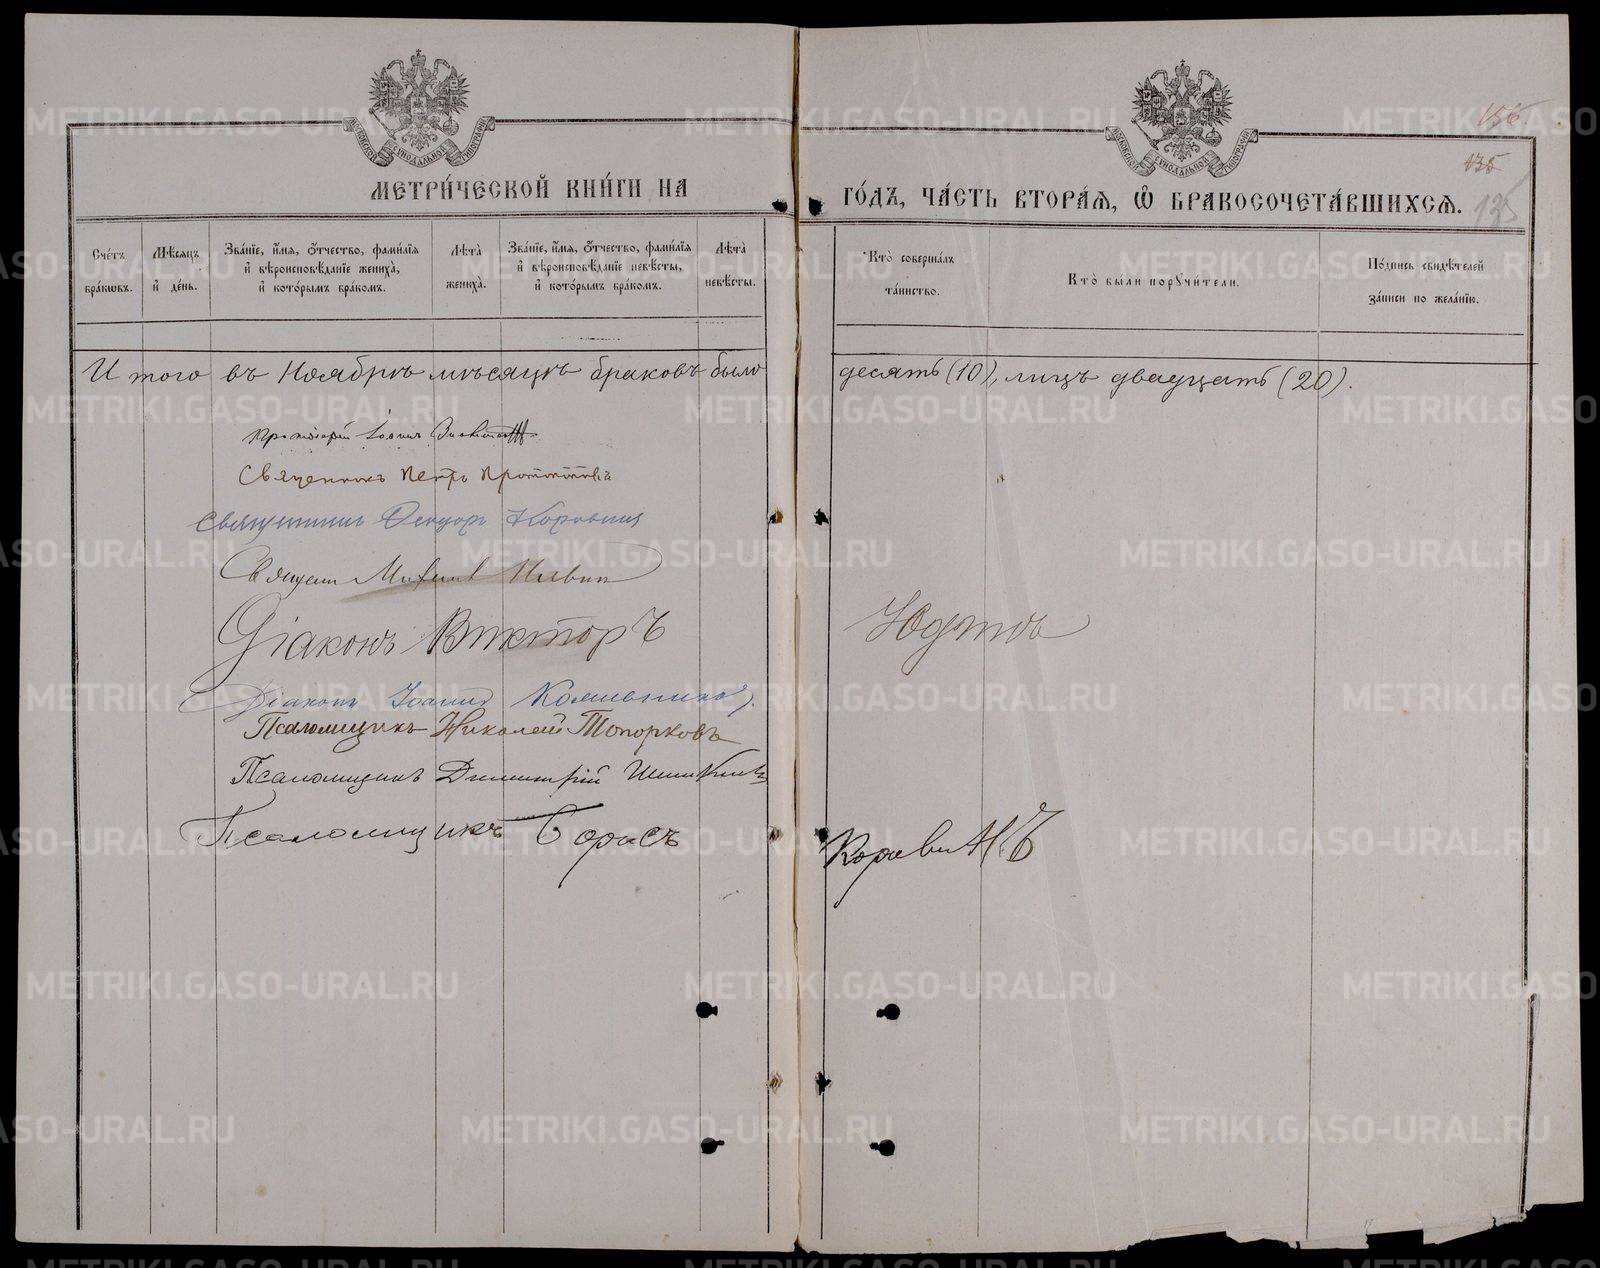 156
135
135
МОСКОВСКОЙ СѴНОДАЛЬНОЙ ТИПОГРАФІИ
МОСКОВСКОЙ СѴНОДАЛЬНОЙ ТИПОГРАФІИ
МЕТРИ́ЧЕСКОЙ КНИ́ГИ НА
ГО́ДЪ, ЧА́СТЬ ВТОРА́Я, Ѡ҆ БРАКОСОЧЕТА́ВШИХСЯ.
Сче́тъ бра́кѡвъ.
Мѣ́сяцъ и҆ де́нь.
Зва́нїе, и҆́мя, ѻ҆́тчество, фами́лїя и҆ вѣроисповѣ́данїе жениха̀, и҆ кото́рымъ бра́комъ.
Лѣ́та̀ жениха̀.
Зва́нїе, и҆́мя, ѻ҆́тчество, фами́лїя и҆ вѣроисповѣ́данїе невѣ́сты, и҆ кото́рымъ бра́комъ.
Лѣ́та̀ невѣ́сты.
Кто̀ соверша́лъ та́инство.
Кто̀ бы́ли порꙋчи́тели.
По́дпись свидѣ́телей за́писи по жела́нїю.
Итого въ Ноябрѣ мѣсяцѣ браковъ было десять (10), лицъ двадцать (20).
Протоіерей Іоаннъ
Священникъ Петръ
Священникъ Феодоръ Коровинъ
Священ Михаилъ
Діаконъ Викторъ Юдинъ
Діаконъ Іоаннъ
Псаломщикъ Николай Топорковъ
Псаломщикъ Димитрій
Псаломщикъ Борисъ Коровинъ
METRIKI.GASO-URAL.RU